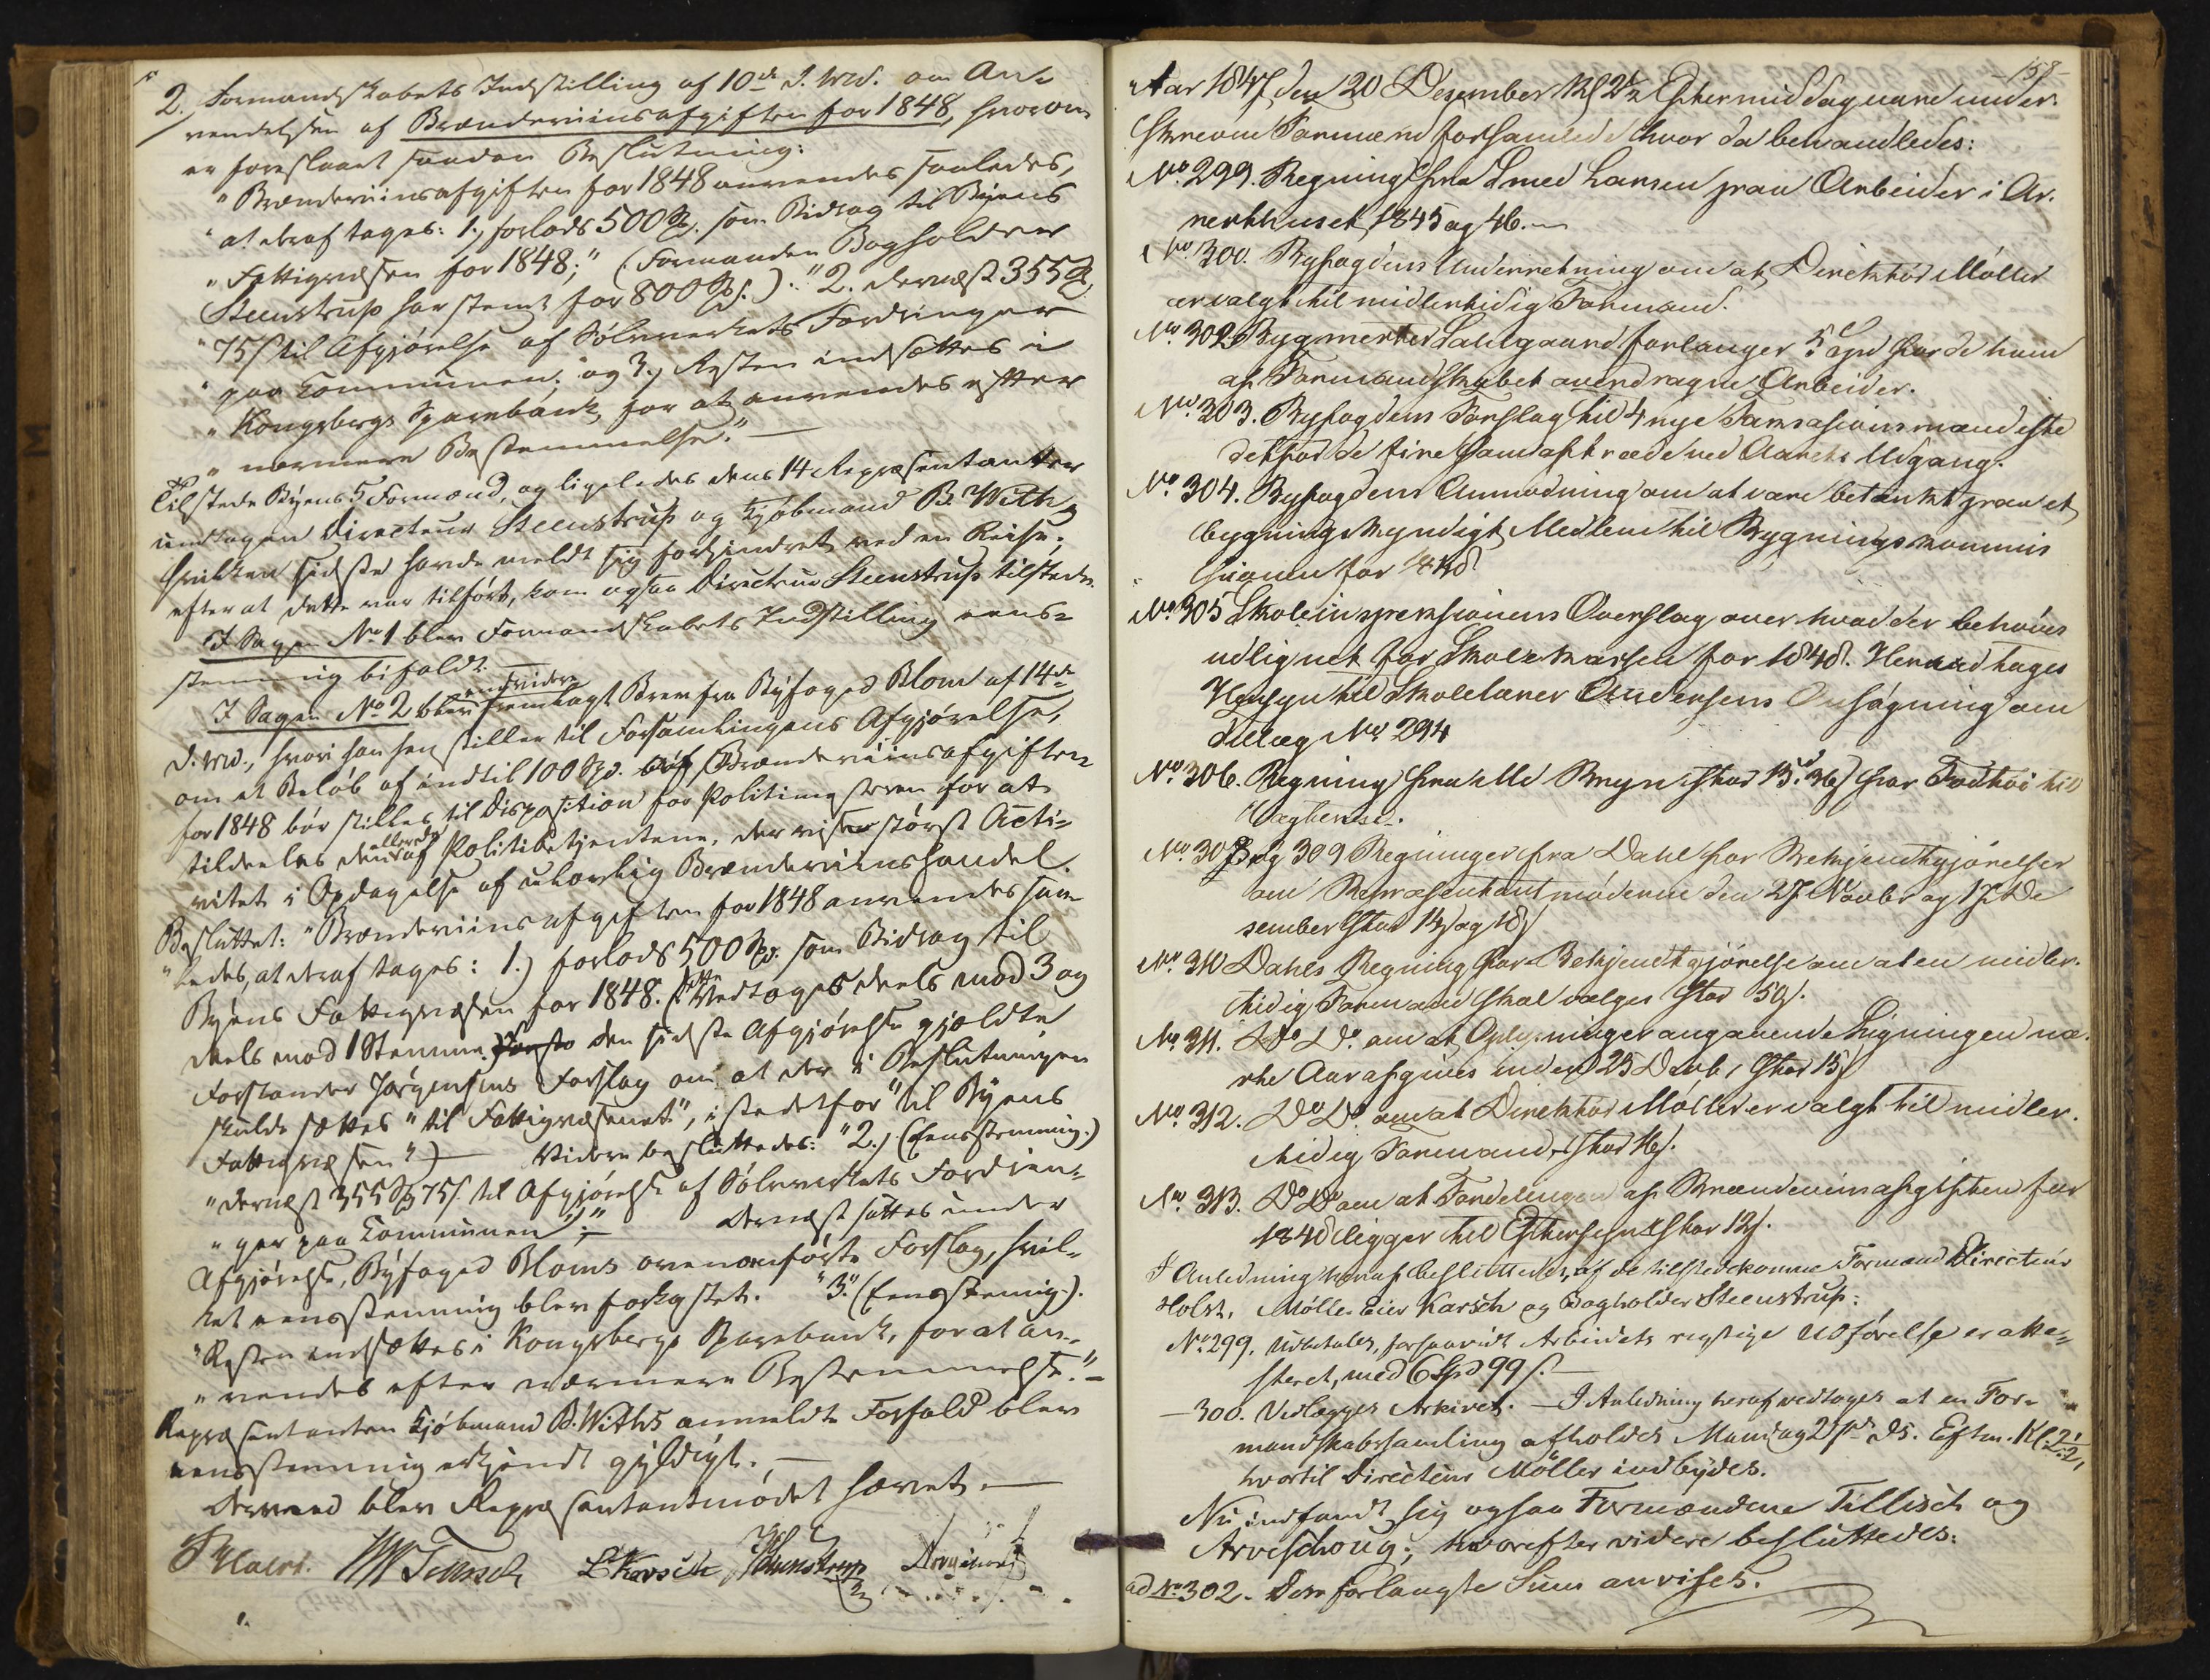 2. Formandskabets Indstilling af 10de d. Md. om An-
vendelsen af Brændeviinsafgiften for 1848, hvorom
er foreslaaet saadan Beslutning:
"Brændeviinsafgiften for 1848 anvendes saaledes,
"at deraf tages: 1.) forlods 500 Spd. som Bidrag til Byens
"Fattigvæsen for 1848;" (Formanden Bogholder
Steenstrup har stemt for 800 Spd.). "2. dernæst 355 Spd
"75 s til Afgjørelse af Sølvverkets Fordringer
"paa Communen; og 3.) Resten indsættes i
"Kongsbergs Sparebank, for at anvendes efter
"nærmere Bestemmelse." —
Tilstede Byens 5 Formænd, og ligeledes dens 14 Repræsentanter
undtagen Directeur Steenstrup og Kjøbmand B. With,
hvilken sidste havde meldt sig forhindret ved en Reise;
efterat dette var tilført, kom ogsaa Directeur Steenstrup tilstede.
I Sagen No 1 blev Formandskabets Indstilling eens-
stemmig bifaldt. —
I Sagen No 2 blev endvidere fremlagt Brev fra Byfoged Blom af 14de
d. Md., hvori han henstiller til Forsamlingens Afgjørelse,
om et Beløb af indtil 100 Spd. af Brændeviinsafgiften
for 1848 bør stilles til Disposition for Politimesteren for at
tildeles den af Politibetjentene, der viser størst Acti-
vitet i Opdagelse af ulovlig Brændeviinshandel.
Besluttet: "Brændeviinsafgiften for 1848 anvendes saa-
"ledes, at deraf tages: 1.) forlods 500 Spd. som Bidrag til
Byens Fattigvæsen for 1848. (Dette vedtoges deels mod 3 og
deels mod 1 Stemme. den sidste Afgjørelse gjældte
Forstander Jørgensens Forslag om at der i Beslutningen
skulde sættes "til Fattigvæsenet", istedetfor "til Byens
Fattigvæsen") — Videre besluttedes: "2.) (Eensstemmig.)
"dernæst 355 Spd 75 s. til Afgjørelse af Sølvverkets Fordrin-
"ger paa Communen"; — dernæst sattes under
Afgjørelse, Byfoged Bloms ovenanførte Forslag, hvil-
ket eensstemmig blev forkastet. "3." (Eensstemmig.).
"Resten indsættes i Kongsbergs Sparebank, for at an-
"vendes efter nærmere Bestemmelse." —
Repræsentanten Kjøbmand B. Withs anmeldte Forfald blev
eensstemmig erkjendt gyldigt. —
Dermed blev Repræsentantmødet hævet. —
P Holst. Tillisch L Karsch Steenstrup Arveschoug
-158-
Aar 1847 den 20 Dezember Kl 2½ Eftermiddag vare under-
skrevne Formænd forsamlede hvor da behandledes:
No. 299. Regning fra Smed Larsen paa Arbeider i Ar-
resthuset, 1845 og 46. —
No. 300. Byfogdens Underretning om at Direktør Møller
er valgt til midlertidig Formand.
No. 302 Bygmester Dahlgaard forlanger 5 Spd for de ham
af Formandskabet overdragne Arbeider.
No. 303. Byfogdens Forslag til 4 nye Taxasionsmænd iste-
detfor de fire som aftræde ved Aarets Udgang.
No. 304. Byfogdens Anmodning om at være betænkt paa et
bygningskyndigt Medlem til Bygningskommis-
sionen for 1848
No. 305 Skoleinspeksionens Overslag over hvad der behøves
udlignet for Skolekassen for 1848. Herved tages
Hensyn til Skolelærer Andersens Ansøgning om
Tillæg No. 294
No. 306. Regning fra Bryn stor 15. 36 s for Fodtøi til
No. 308 og 309 Regninger fra Dahl for Bekjendtgjørelser
om Repræsentantmøderne den 27. Novbr og 17 De-
sember stor 14 s og 18 s
No. 310 Dahls Regning for Bekjendtgjørelse om at en midler-
tidig Formand skal vælges stor 59 s.
No. 311. Do Do. om at Oplysninger angaaende Ligningen næ-
ste Aar afgives inden 25 Debr, stor 15 s
No. 312. Do Do. om at Direktør Møller er valgt til midler-
tidig Formand, stor 16 s.
No. 313. Do Do om at Fordelingen af Brændeviinsafgiften for
1848 ligger til Eftersyn stor 12 s.
I Anledning heraf besluttedes, af de tilstedekomne Formænd Directeur
Holst, Mølleeier Karsch og Bogholder Steenstrup:
No. 299. Udbetales, forsaavidt Arbeidets rigtige Udførelse er atte-
steret, med 6 Spd 99 s. —
— 300. Vedlægges Arkivet. — I Anledning heraf vedtoges at en For-
mandskabssamling afholdes Mandag 27de ds. Efterm. Kl. 2½,
hvortil Directeur Møller indbydes.
Nu indfandt sig ogsaa Formændene Tillisch og
Arveschoug; hvorefter videre besluttedes:
ad No 302. Den forlangte Sum anvises.